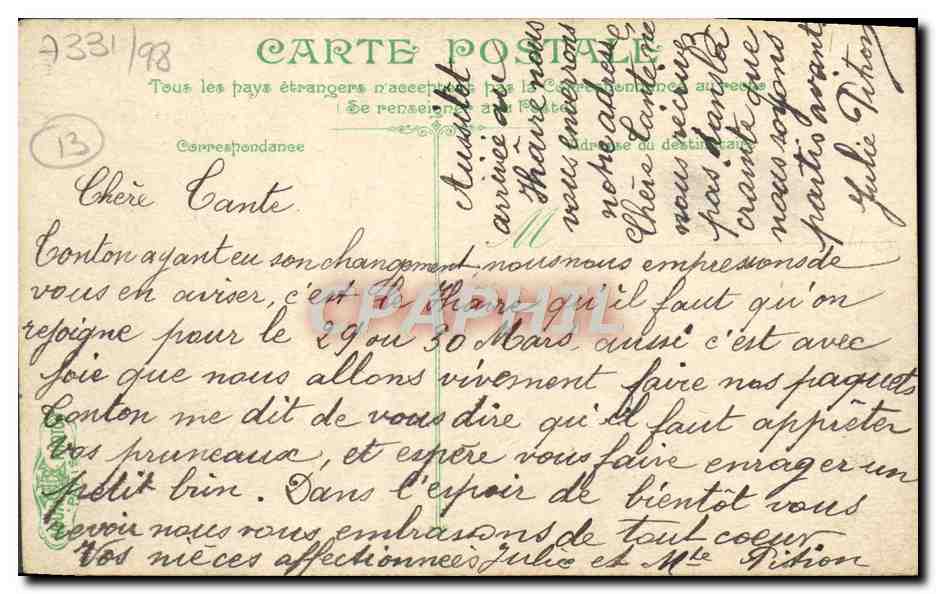 A331/98
13
CARTE POSTALE
Tous les pays étrangers n'acceptent pas la Correspondance au recto
(Se renseigner à la Poste)
Correspondance
Adresse du destinataire
M
Chère Tante
Tonton ayant eu son changement nous nous empressons de
vous en aviser, c'est le Hâvre qu'il faut qu'on
rejoigne pour le 29 ou 30 Mars, aussi c'est avec
joie que nous allons vivement faire nos paquets
Tonton me dit de vous dire qu'il faut apprêter
vos pruneaux, et espère vous faire enrager un
petit brin. Dans l'espoir de bientôt vous
revoir nous vous embrassons de tout coeur
Vos nièces affectionnées Julie et Mte Pition
Aussitôt
arrivée au
Hâvre nous
vous enverrons
notre adresse
Chère Tante ne
nous récrivez
pas dans la
crainte que
nous soyons
partis avant
Julie Pition
CPAPHIL